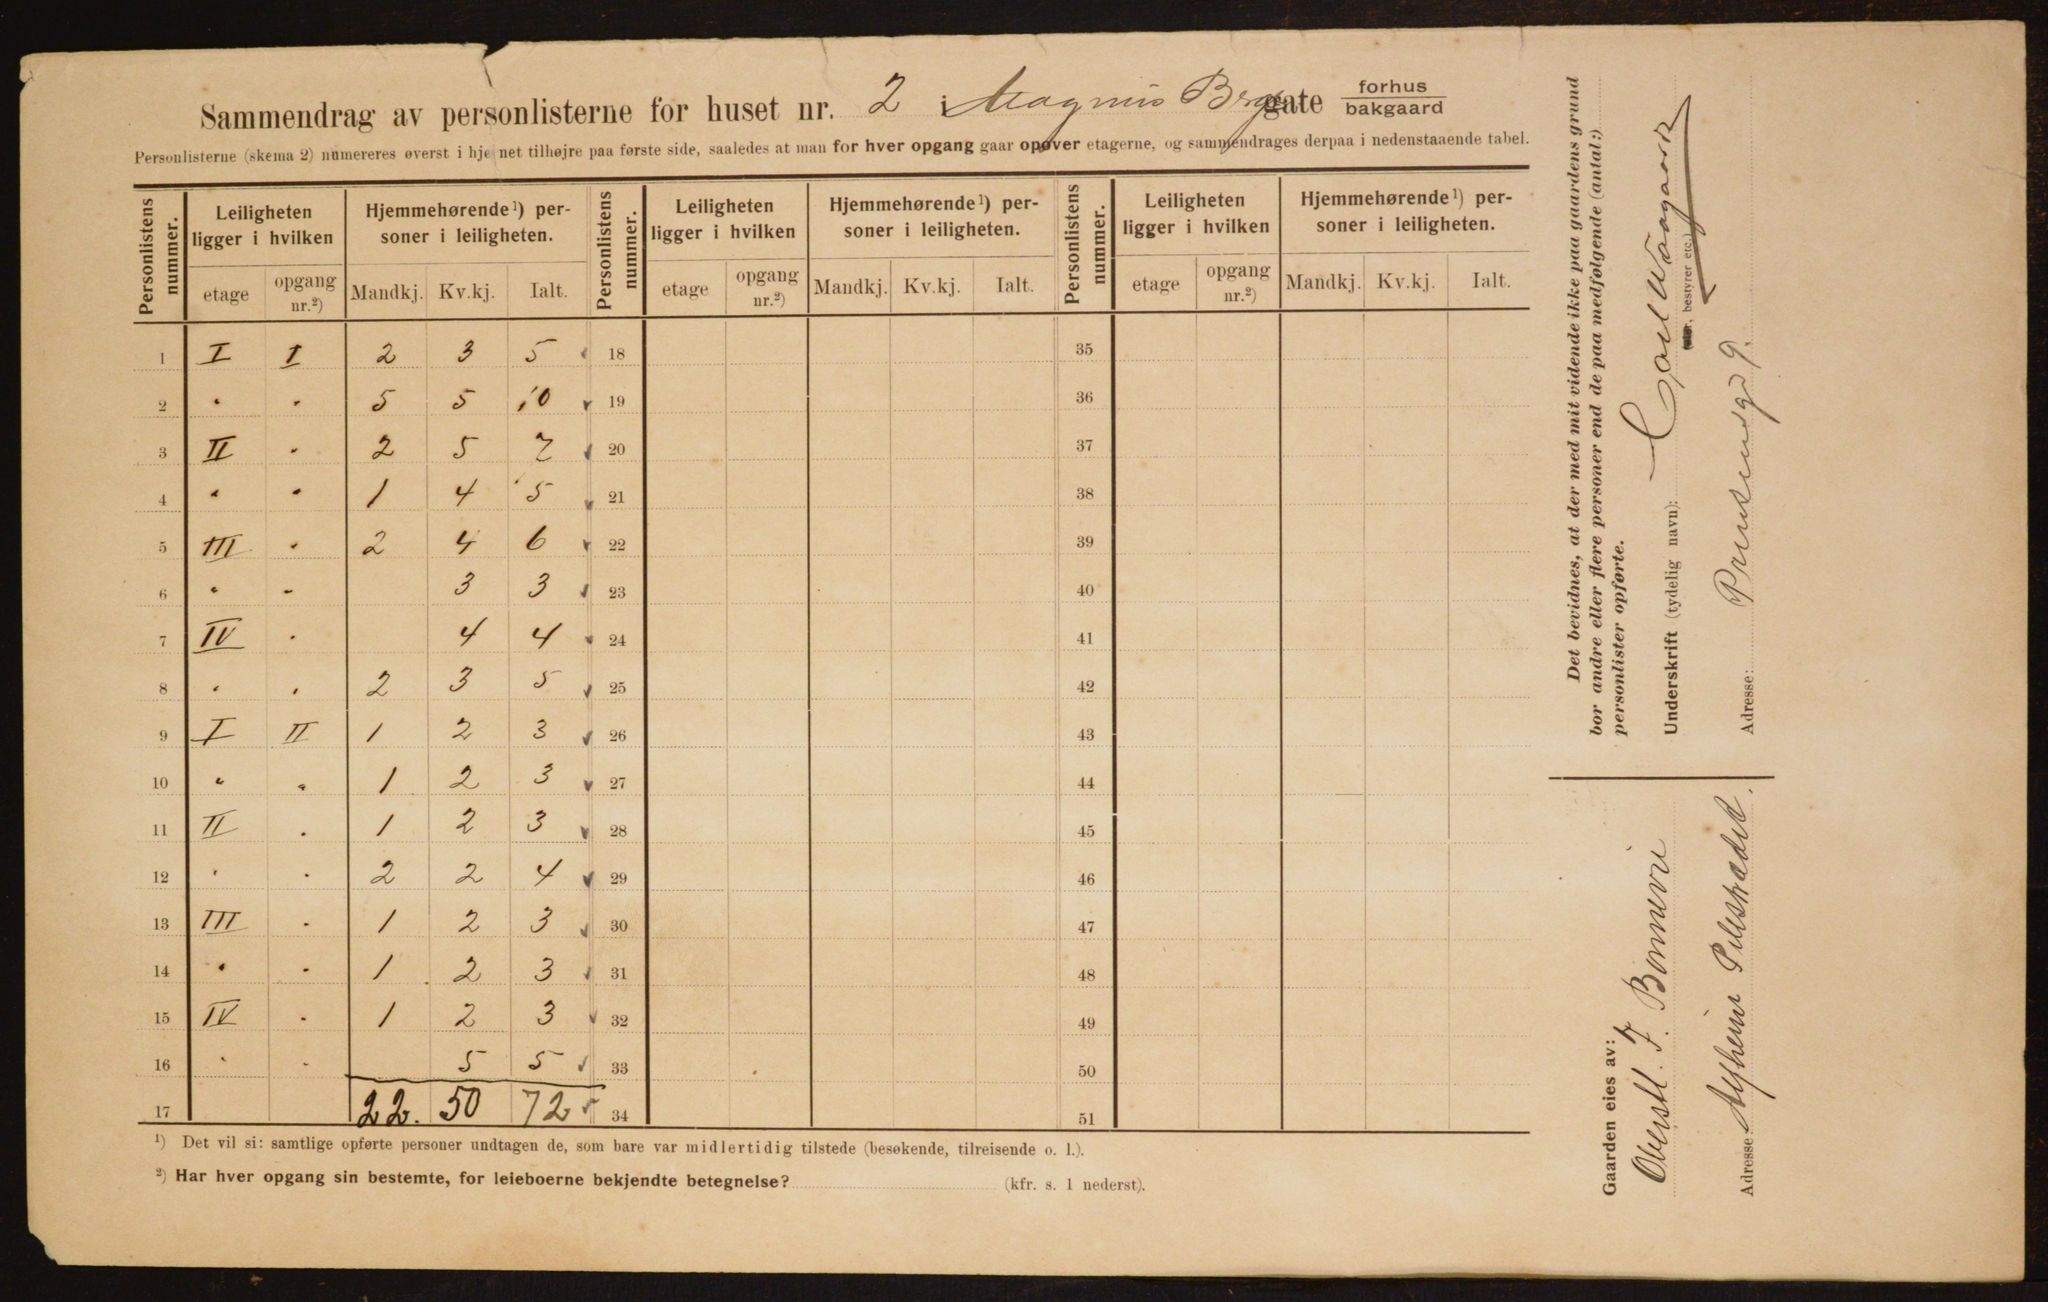 Sammendrag av personlisterne for huset nr. 2 i Magnus Bergs gate forhus/bakgaard
Personlisterne (skema 2) numereres øverst i hjørnet tilhøjre paa første side, saaledes at man for hver opgang gaar opover etagerne, og sammendrages derpaa i nedenstaaende tabel.
Personlistens nummer. Leiligheten ligger i hvilken Hjemmehørende¹) personer i leiligheten. Personlistens nummer. Leiligheten ligger i hvilken Hjemmehørende¹) personer i leiligheten. Personlistens nummer. Leiligheten ligger i hvilken Hjemmehørende¹) personer i leiligheten.
etage opgang nr.²) Mandkj. Kv.kj. Ialt. etage opgang nr.²) Mandkj. Kv.kj. Ialt. etage opgang nr.²) Mandkj. Kv.kj. Ialt.
1 I I 2 3 5 18 35
2 " " 5 5 10 19 36
3 II " 2 5 7 20 37
4 " " 1 4 5 21 38
5 III " 2 4 6 22 39
6 " " 3 3 23 40
7 IV " 4 4 24 41
8 " " 2 3 5 25 42
9 I II 1 2 3 26 43
10 " " 1 2 3 27 44
11 II " 1 2 3 28 45
12 " " 2 2 4 29 46
13 III " 1 2 3 30 47
14 " " 1 2 3 31 48
15 IV " 1 2 3 32 49
16 " " 5 5 33 50
17 22. 50 72 34 51
¹) Det vil si: samtlige opførte personer undtagen de, som bare var midlertidig tilstede (besøkende, tilreisende o. l.).
²) Har hver opgang sin bestemte, for leieboerne bekjendte betegnelse? (kfr. s. 1 nederst).
Det bevidnes, at der med mit vidende ikke paa gaardens grund
bor andre eller flere personer end de paa medfølgende (antal:)
personlister opførte.
Underskrift (tydelig navn): Carl
, bestyrer etc.)
Adresse: Prinsensgd 9.
Gaarden eies av:
Oberstl. J. Bonnevie
Adresse Alfheim Pilestrædet.